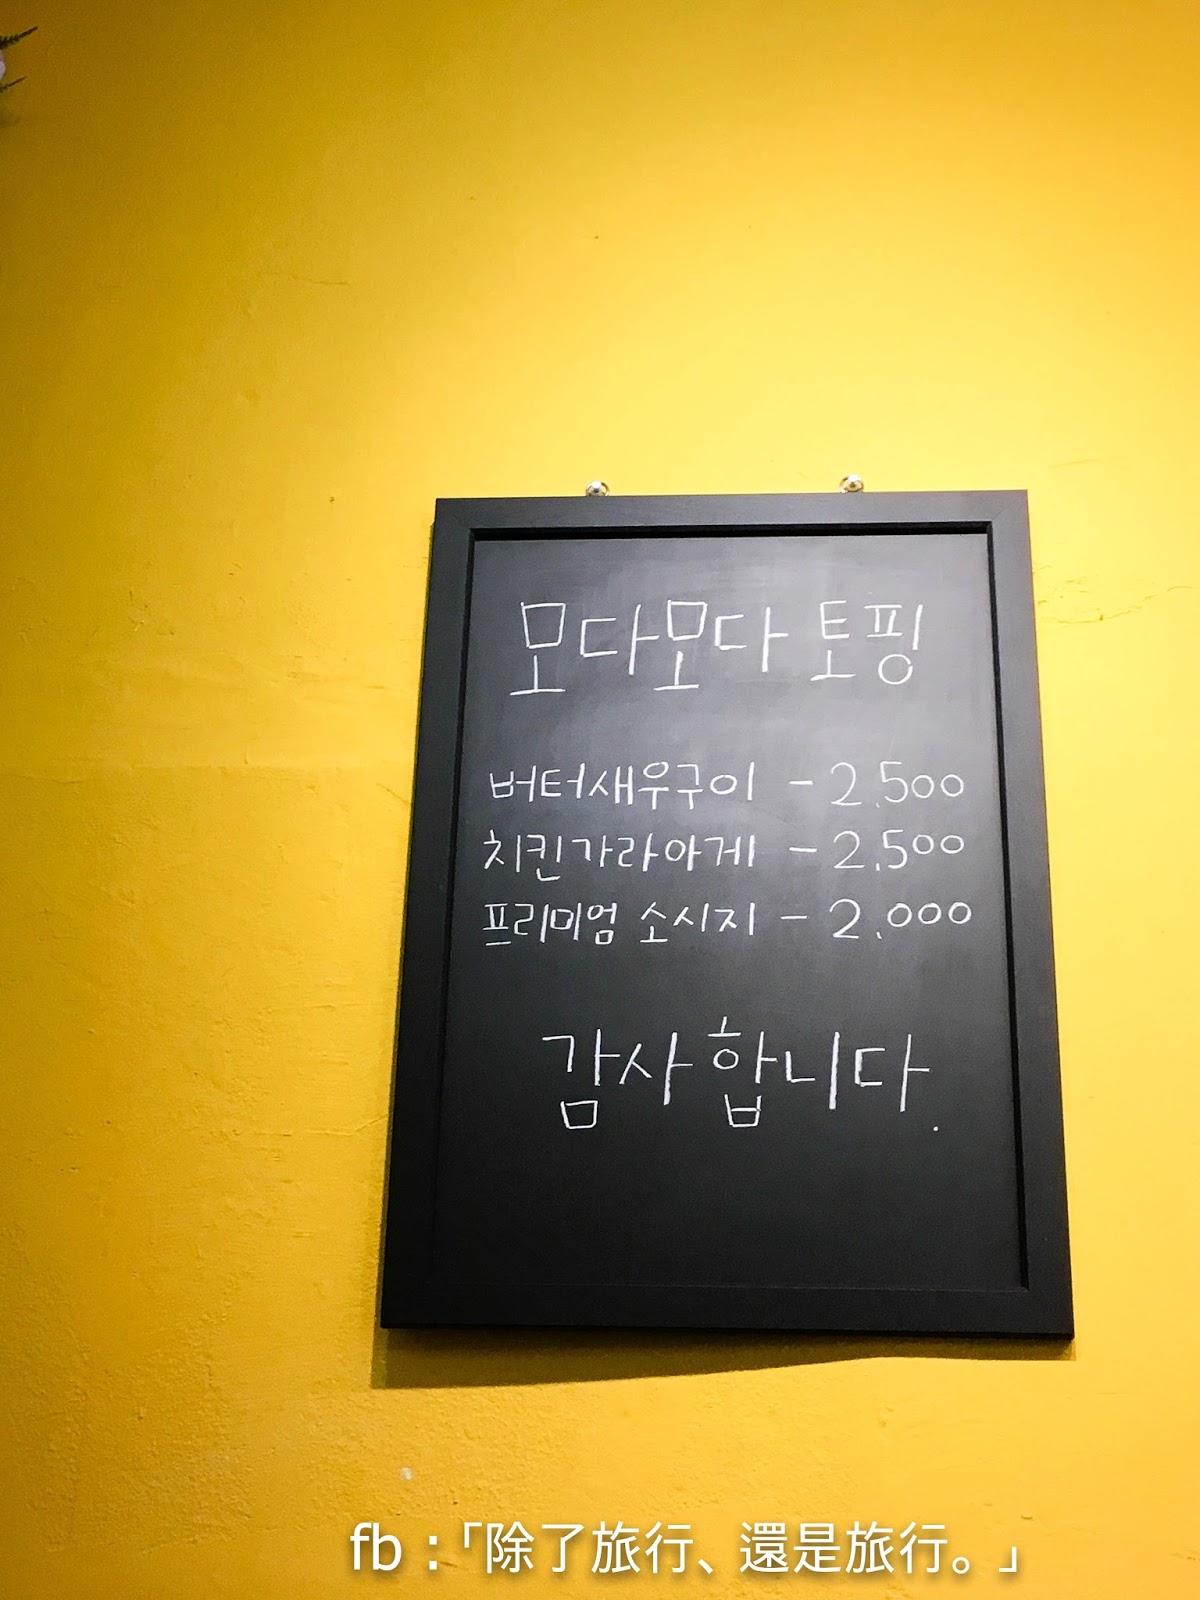 모다모다 토핑
버터새우구이 - 2.500
치킨가라아게 - 2.500
프리미엄 소시지 - 2.000
감사합니다.
fb：「除了旅行、還是旅行。」